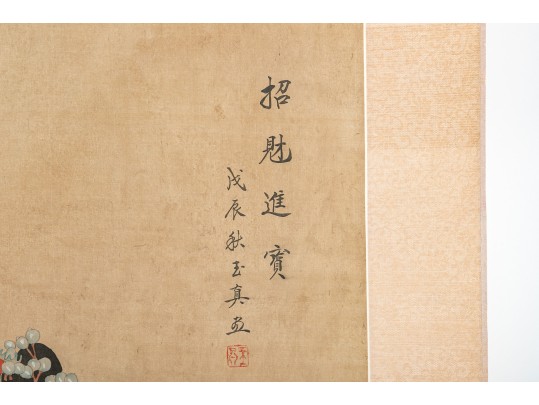 招財進寶
戊辰秋玉真畫